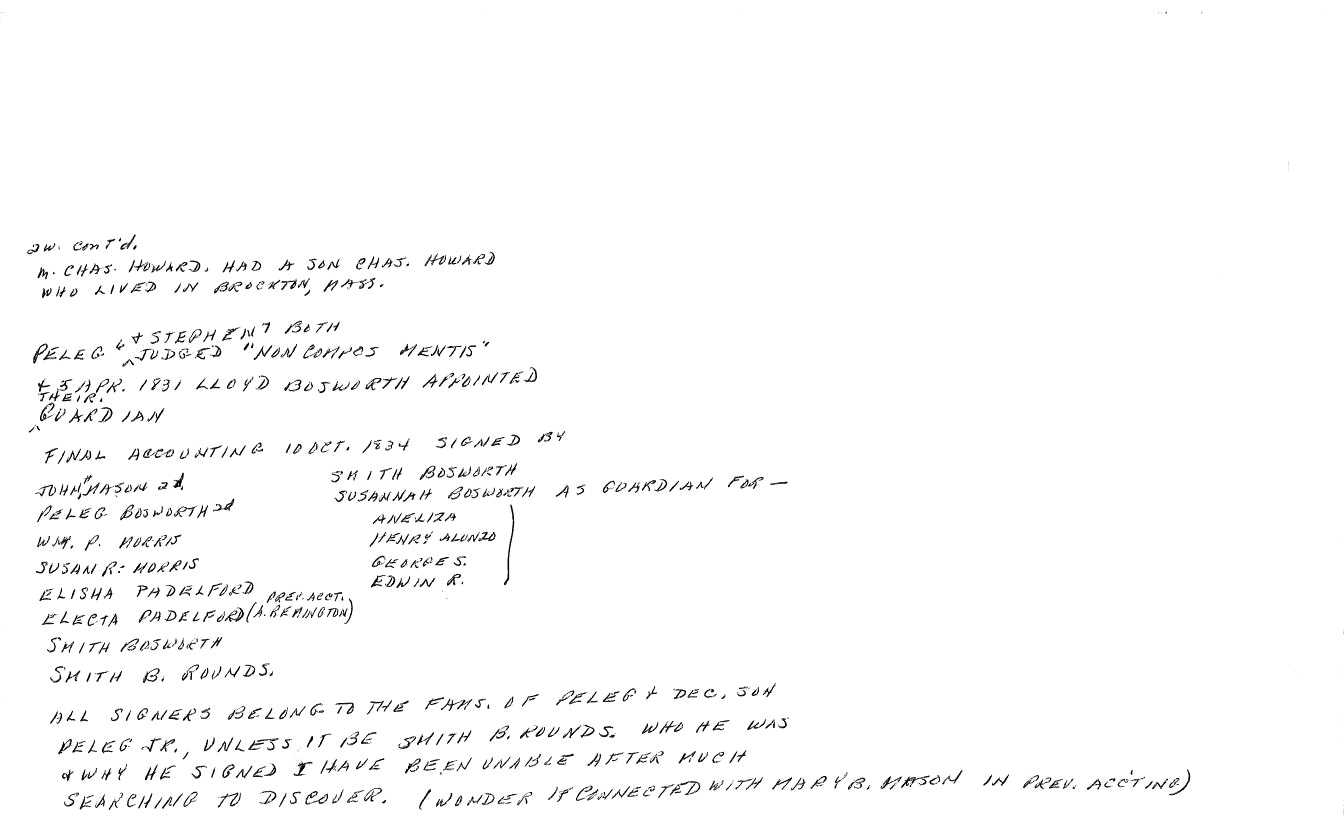 2w. cont'd.
m. CHAS. HOWARD. HAD A SON CHAS. HOWARD
WHO LIVED IN BROCKTON, MASS.
PELEG 6 & STEPHEN 7 BOTH
^ JUDGED "NON COMPOS MENTIS"
& 5 APR. 1831 LLOYD BOSWORTH APPOINTED
THEIR.
^ GUARDIAN
FINAL ACCOUNTING 10 OCT. 1834 SIGNED BY
JOHN, MASON 2d. SMITH BOSWORTH
PELEG BOSWORTH 2d SUSANNAH BOSWORTH AS GUARDIAN FOR —
WM. P. MORRIS ANELIZA
SUSAN R. MORRIS HENRY ALONZO
ELISHA PADELFORD GEORGE S.
ELECTA PADELFORD (A. REMINGTON) PREV. ACCT. EDWIN R.
SMITH BOSWORTH
SMITH B. ROUNDS.
ALL SIGNERS BELONG TO THE FAMS. OF PELEG & DEC. SON
PELEG JR., UNLESS IT BE SMITH B. ROUNDS. WHO HE WAS
& WHY HE SIGNED I HAVE BEEN UNABLE AFTER MUCH
SEARCHING TO DISCOVER. (WONDER IF CONNECTED WITH MARY B. MASON IN PREV. ACC'TING)